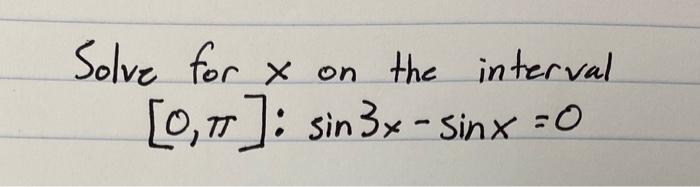 Solve for x on the interval
[0, π]: sin3x - sinx = 0